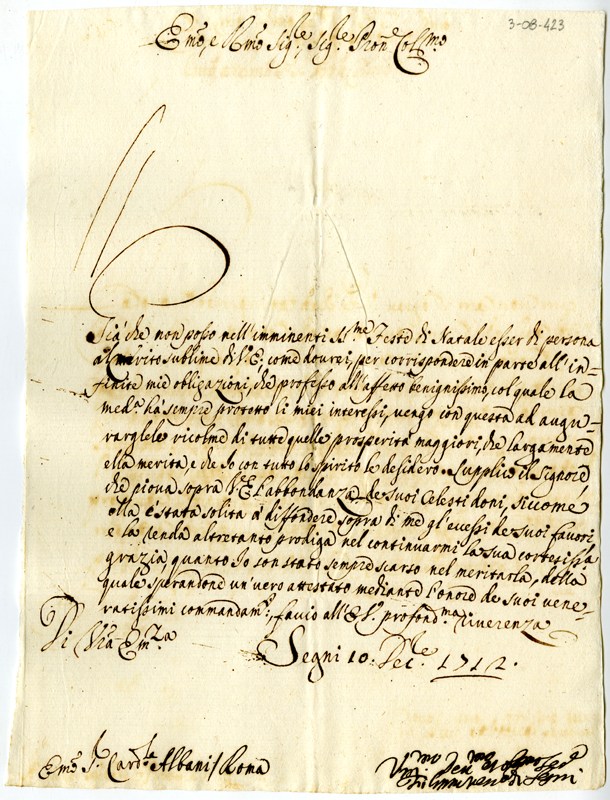 3-08-423
Em.o, e R.mo Sig.re, Sig.re Pron.e Coll.mo
Già che non posso nell'imminenti SS.me Feste di Natale esser di persona
al merito sublime di V.E., come dovrei, per corrispondere in parte all'in=
finite mie obligazioni, che professo all'affetto benignissimo, col quale la
med.a hà sempre protetto li miei interessi, vengo con questa ad augu=
rarglele ricolme di tutte quelle prosperità maggiori, che largamente
ella merita, e che Io con tutto lo spirito le desidero. Supplico il Signore,
che piova sopra V.E. l'abbondanza de suoi Celesti doni, siccome
ella è stata solita à diffondere sopra di me gl'eccessi de suoi favori,
e la renda altretanto prodiga nel continuarmi la sua cortesiss.a
grazia, quanto Io son stato sempre scarso nel meritarla, dalla
quale sperandone un vero attestato mediante l'onore de suoi vene=
ratissimi commandam.ti, faccio all'E.V. profond.ma riverenza
Di V'ra Em.za
Segni 10. Dec.re 1712.
Em.o S.r Card.le Albani / Roma
V.mo Dev.mo
Segni